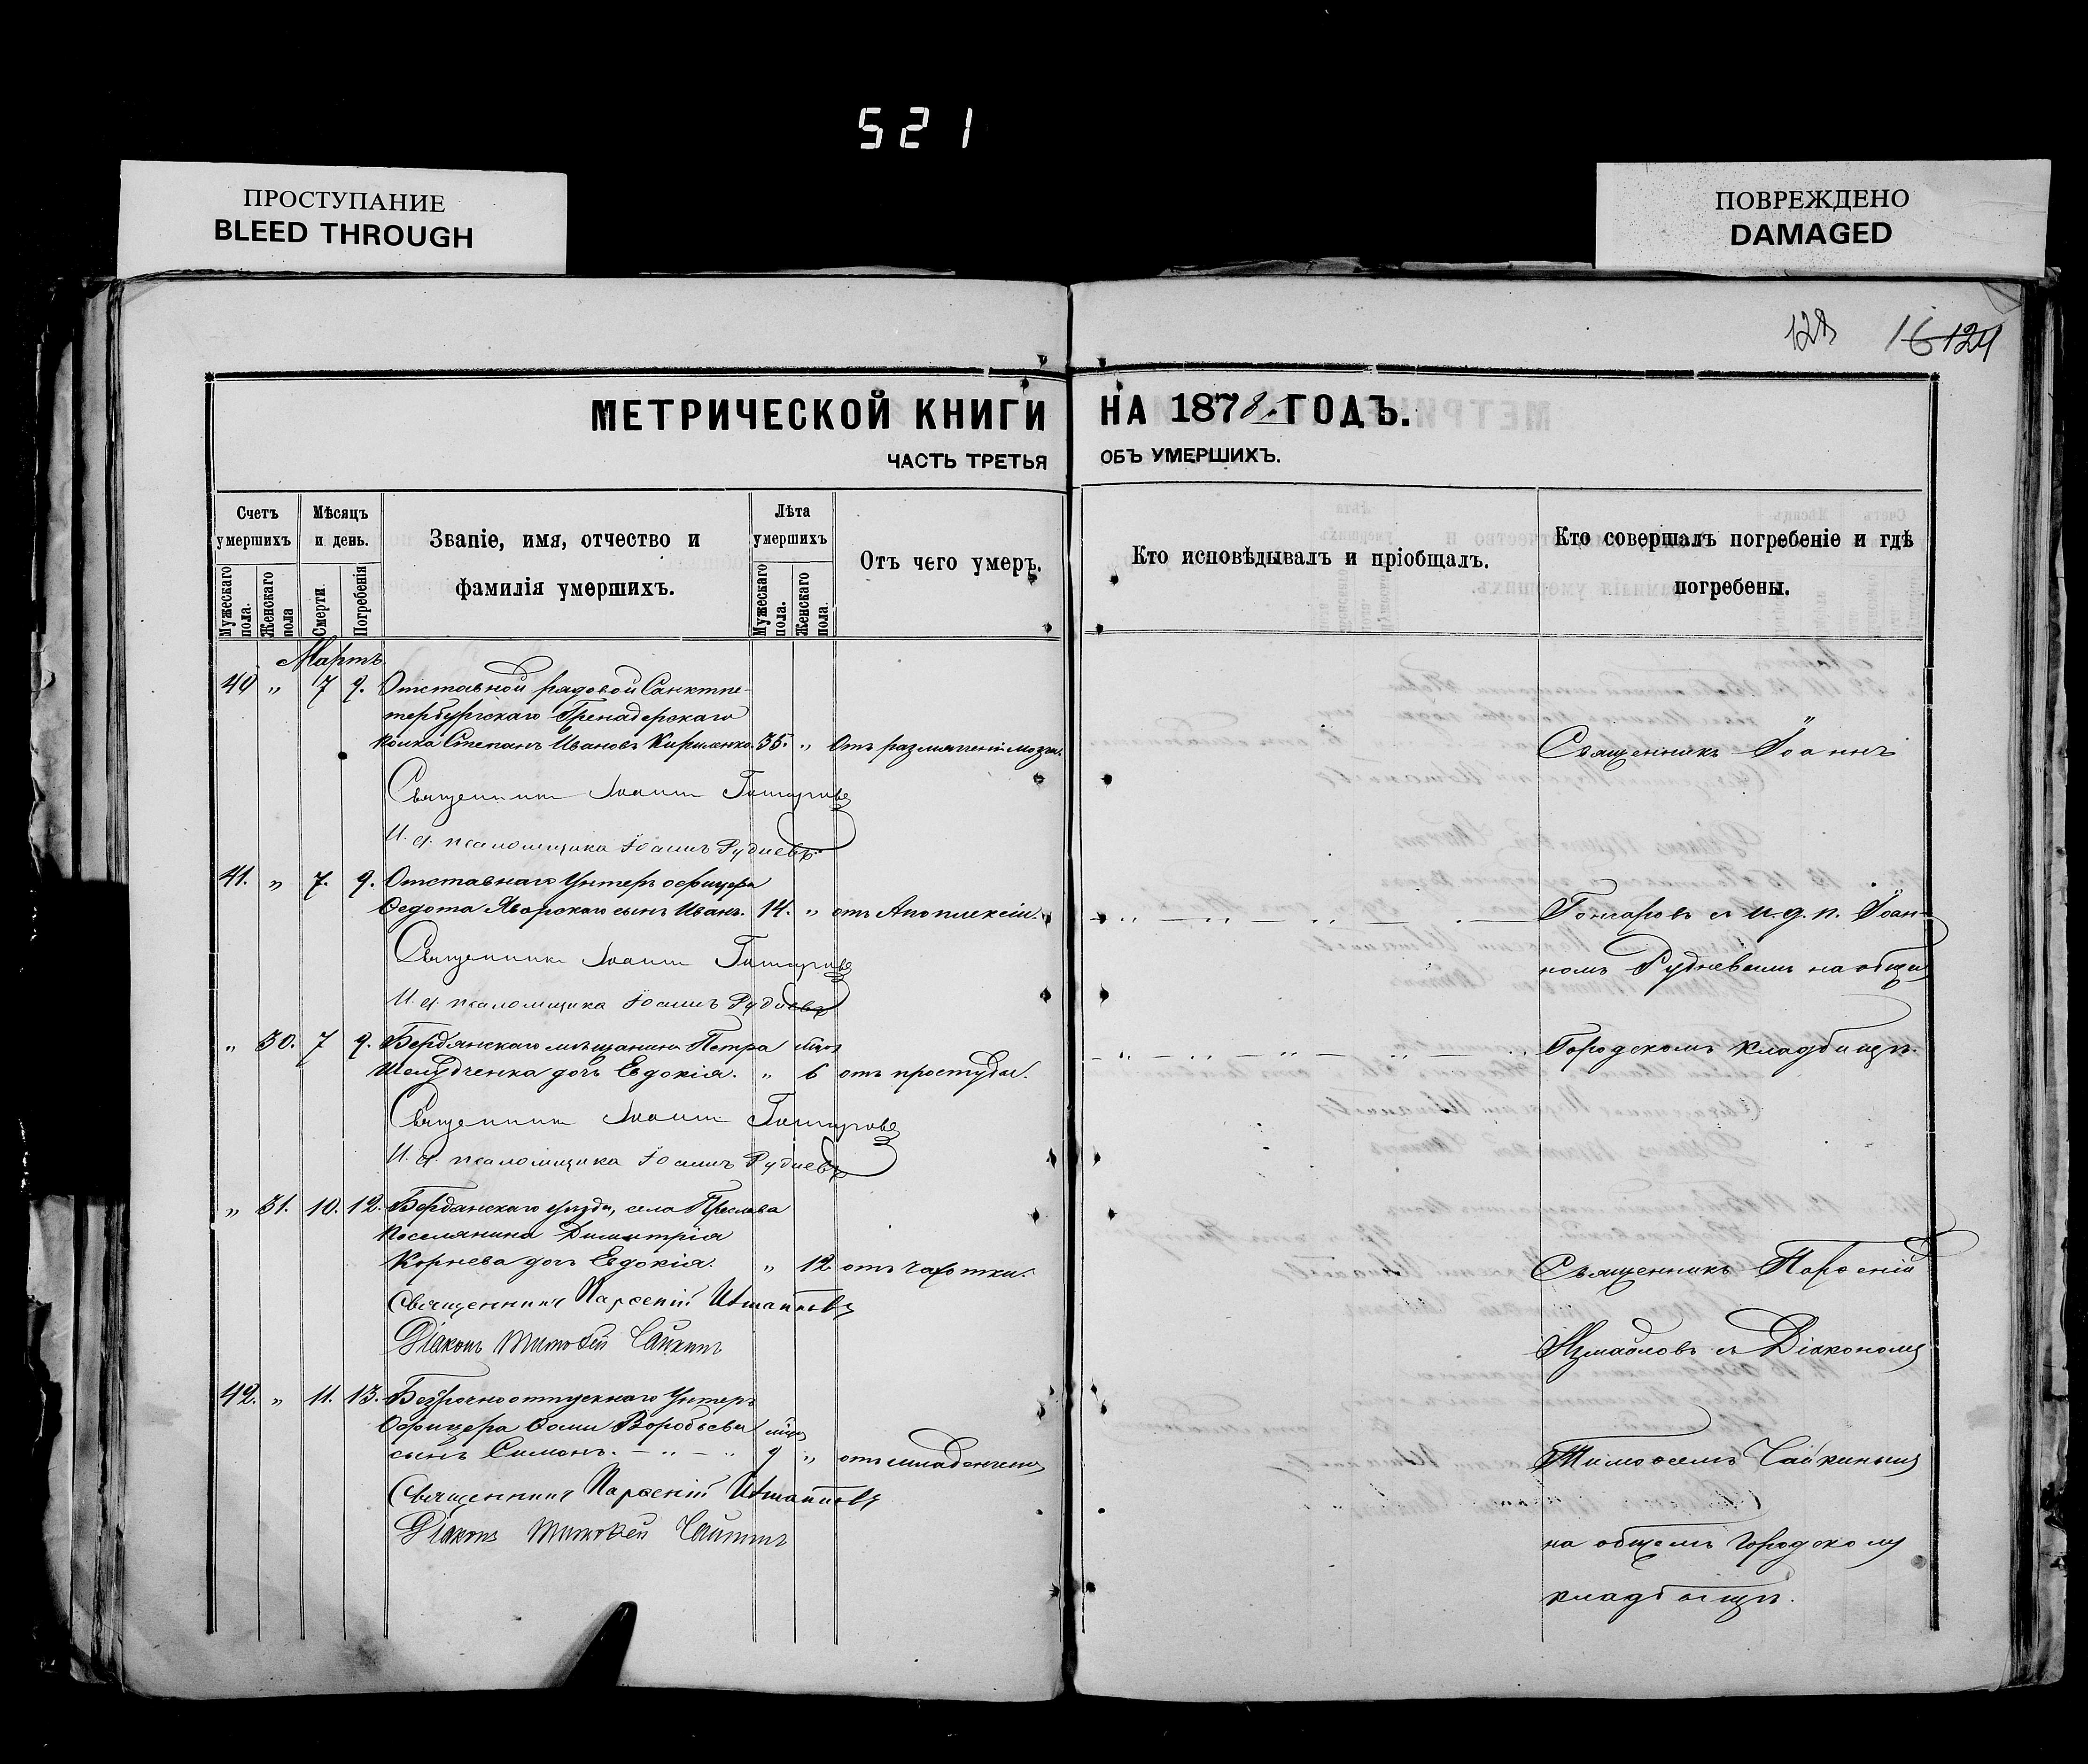 521
ПРОСТУПАНИЕ
BLEED THROUGH
ПОВРЕЖДЕНО
DAMAGED
16 124
МЕТРИЧЕСКОЙ КНИГИ НА 1878 ГОДЪ.
ЧАСТЬ ТРЕТЬЯ ОБЪ УМЕРШИХЪ.
Счетъ умершихъ
Мужескаго пола.
Женскаго пола
Мѣсяцъ и день.
Смерти.
Погребенія
Званіе, имя, отчество и фамилія умершихъ.
Лѣта умершихъ
Мужескаго пола.
Женскаго пола.
Отъ чего умеръ.
Кто исповѣдывалъ и пріобщалъ.
Кто совершалъ погребеніе и гдѣ погребены.
Мартъ
40 " 7 9. Отставной рядовой Санктпе-
тербургскаго Гренадерскаго
полка Степанъ Ивановъ 35. " Отъ размягченія мозга.
Священникъ Іоаннъ Гончаровъ
И. д. псаломщика Іоаннъ Рудневъ
41. " 7. 9. Отставнаго Унтеръ офицера
Ѳедота Яворскаго сынъ Иванъ. 14. " отъ Апоплексіи.
Священникъ Іоаннъ Гончаровъ
И. д. псаломщика Іоаннъ Рудневъ
" 30. 7 9. Бердянскаго мѣщанина Петра
Шелудченка дочь Евдокія. " 6 отъ простуды.
Священникъ Іоаннъ Гончаровъ
И. д. псаломщика Іоаннъ Рудневъ
" 31. 10. 12. Бердянскаго уѣзда, села Преслава
поселянина Димитрія
Корнева дочь Евдокія. " 12 отъ чахотки.
Священникъ Парѳеній Измаиловъ
Діаконъ Тимоѳей Чайкинъ
42. " 11. 13. Безсрочноотпускнаго Унтеръ
Офицера Ѳомы Воробьева
сынъ Симонъ. 9 " отъ младенческ
Священникъ Парѳеній Измаиловъ
Діаконъ Тимоѳей Чайкинъ
Священникъ Іоаннъ
Гончаровъ съ и. д. п. Іоан-
номъ Рудневымъ на общ
Городскомъ кладбищѣ.
Священникъ Парѳеній
Измаиловъ съ Діакономъ
Тимоѳеемъ Чайкинымъ
на общемъ Городскомъ
кладбищѣ.